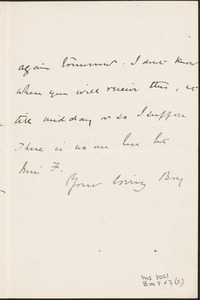 again tomorrow. I don't know
when you will receive this, not
till midday or so I suppose
There is no one here but
Miss F.
Your loving Boy
Ms 2001
Box 2 & 7 (5)